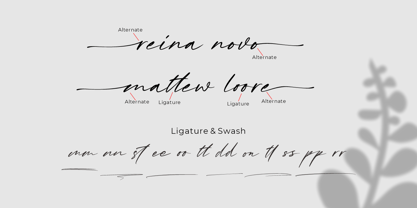 Alternate
reina novo
Alternate
mattew loore
Alternate Ligature Ligature Alternate
Ligature & Swash
mm nn st ee oo tt dd on ll ss pp rr